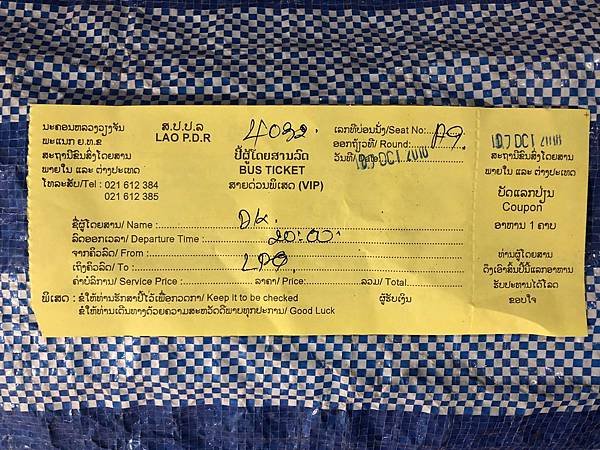 ນະຄອນຫລວງວຽງຈັນ
ພະແນກ ຍ.ທ.ຂ
ສະຖານີຂົນສົ່ງໂດຍສານ
ພາຍໃນ ແລະ ຕ່າງປະເທດ
ໂທລະສັບ/Tel : 021 612 384
021 612 385
ສ.ປ.ປ.ລ
LAO P.D.R
4032.
ປີ້ຜູ້ໂດຍສານລົດ
BUS TICKET
ສາຍດ່ວນພິເສດ (VIP)
ເລກທີ່ບ່ອນນັ່ງ/Seat No: A9.
ອອກຖ້ຽວທີ/ Round:
ວັນທີ/ OCT 2018
ຊື່ຜູ້ໂດຍສານ/ Name :
ລົດອອກເວລາ/ Departure Time : 20:00
ຈາກຄິວລົດ/ From :
ເຖິງຄິວລົດ/ To :
ຄ່າບໍລິການ/ Service Price : ລາຄາ/ Price: ລວມ/ Total
ພິເສດ : ຂໍໃຫ້ທ່ານຮັກສາປີ້ໄວ້ເພື່ອກວດກາ/ Keep it to be checked ຜູ້ຮັບເງິນ
ຂໍໃຫ້ທ່ານເດີນທາງດ້ວຍຄວາມສະຫວັດດີພາບທຸກປະການ/ Good Luck
OCT 2018
ສະຖານີຂົນສົ່ງໂດຍສານ
ພາຍໃນ ແລະ ຕ່າງປະເທດ
ບັດແລກປ່ຽນ
Coupon
ອາຫານ 1 ຄາບ
ທ່ານຜູ້ໂດຍສານ
ດຶງເອົາສົ້ນປີ້ນີ້ແລກອາຫານ
ຮັບປະທານໄດ້ໂລດ
ຂອບໃຈ